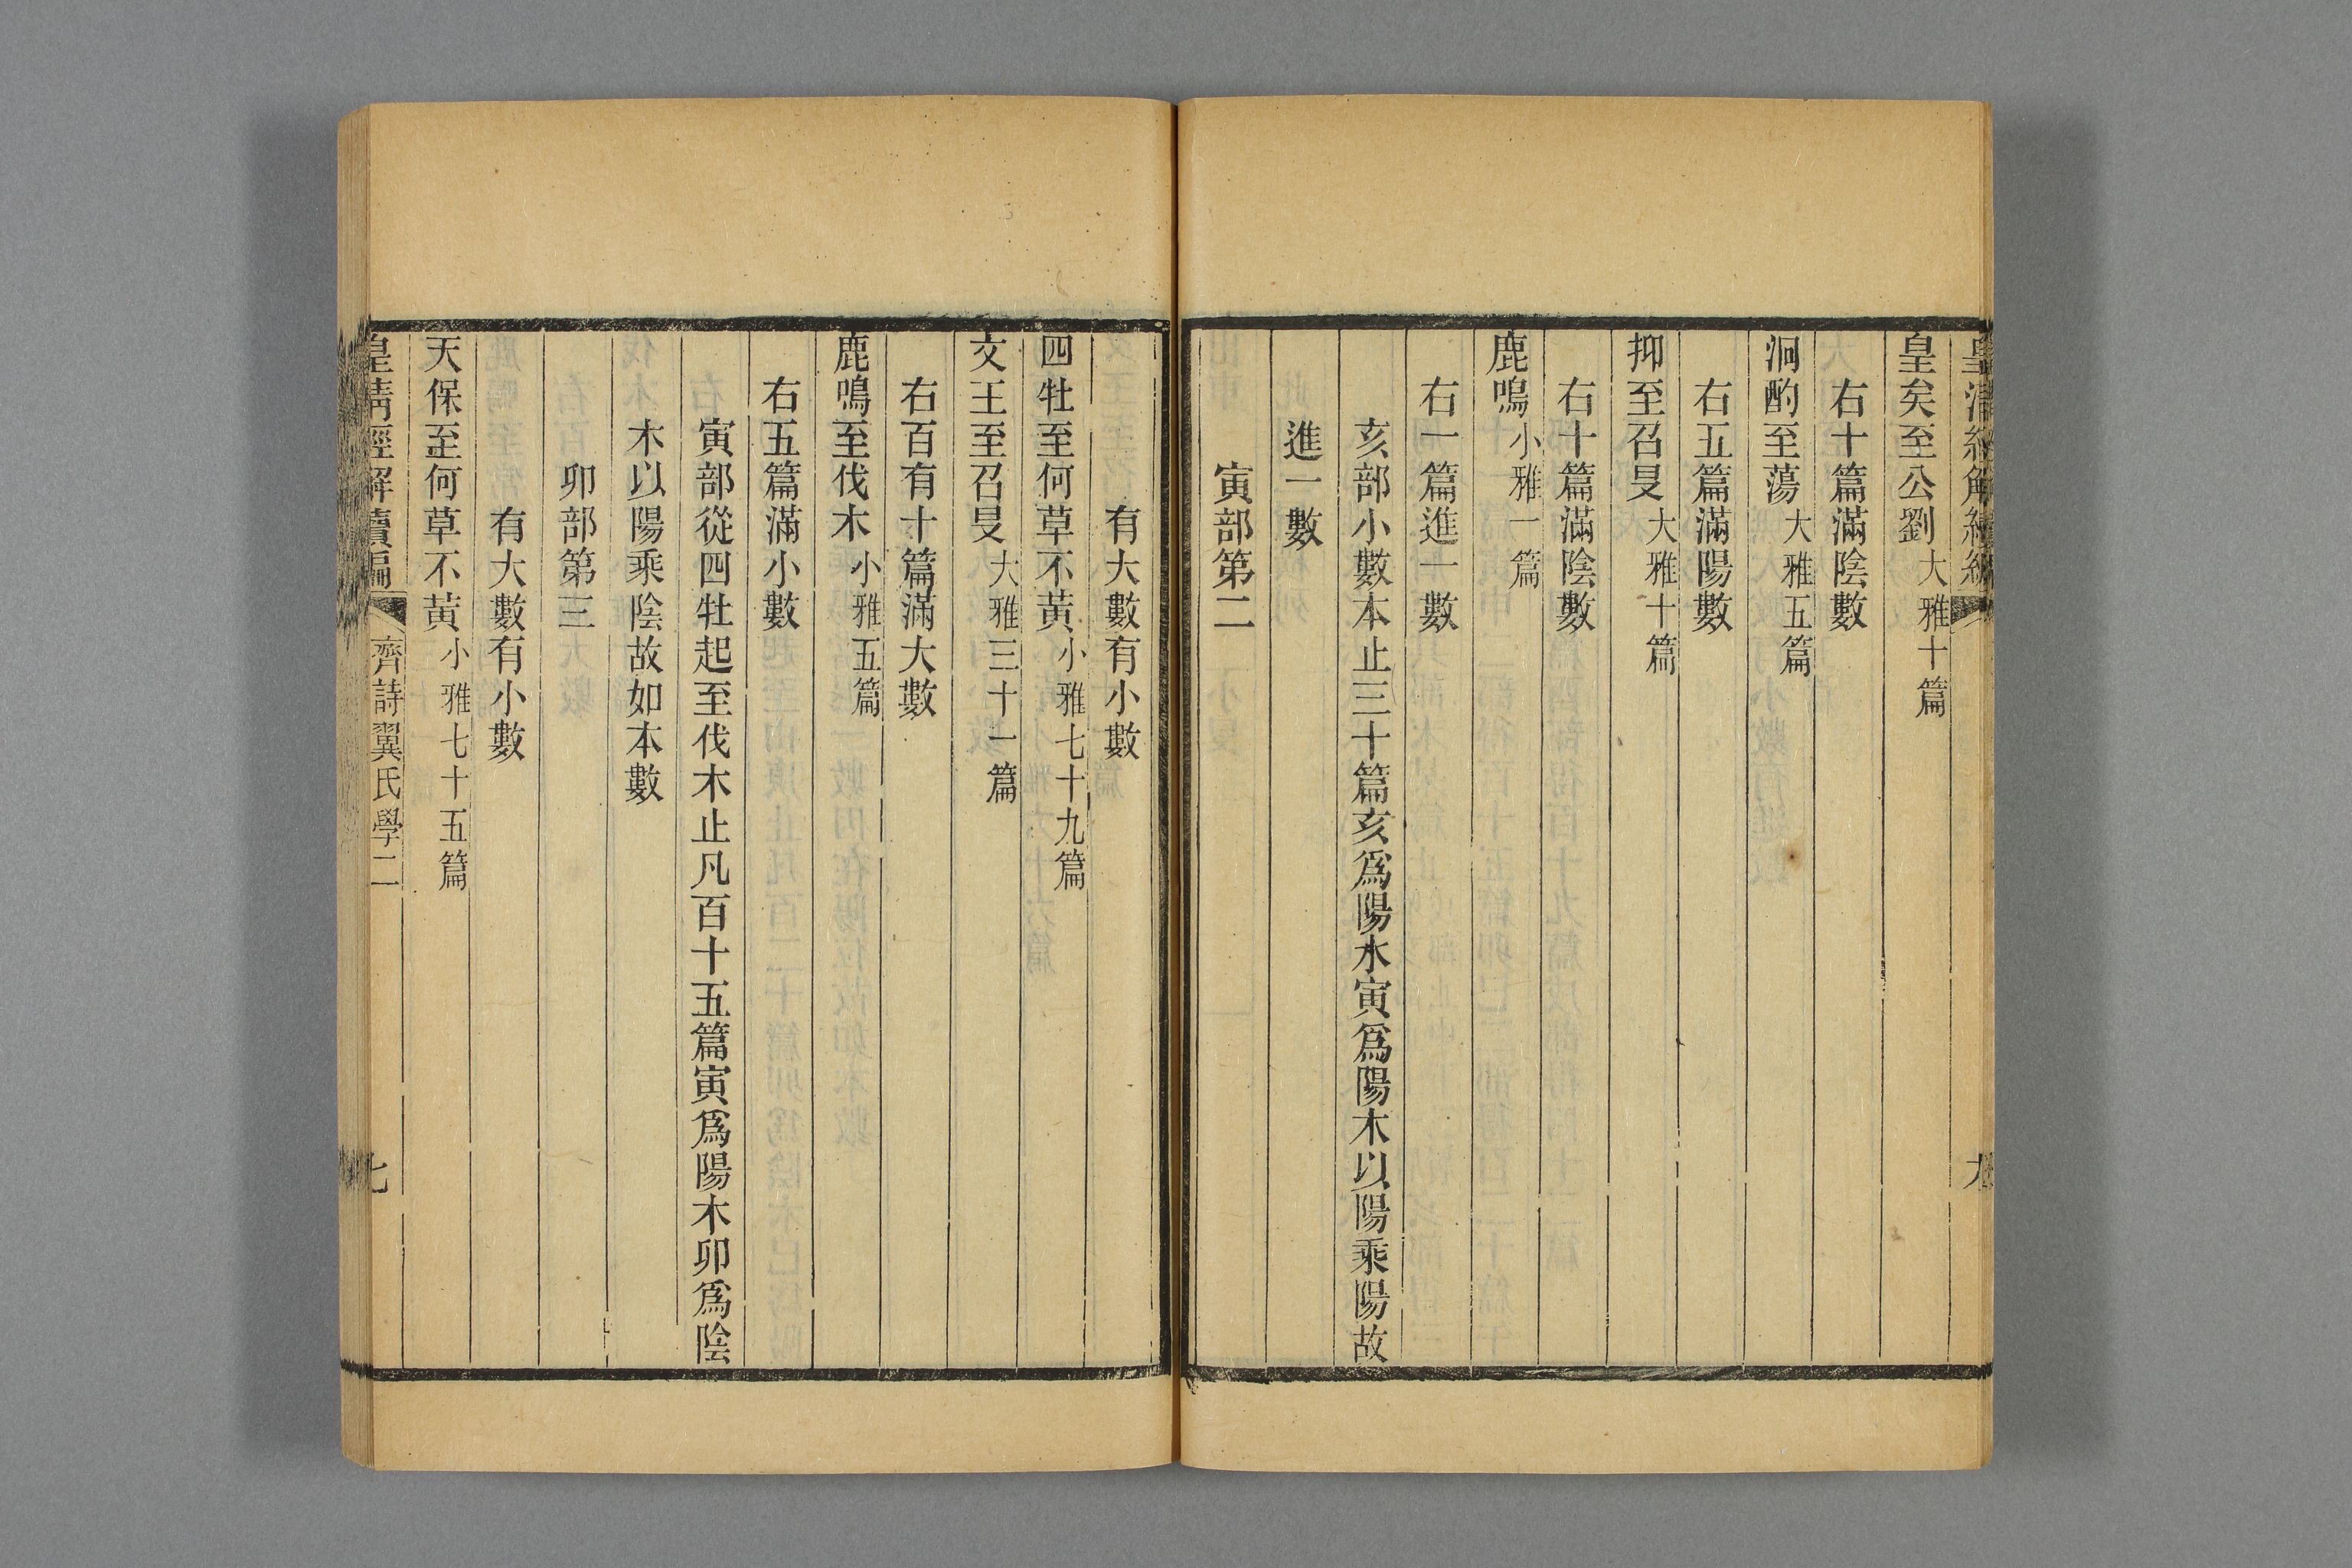 皇矣至公劉大雅十篇
右十篇滿陰數
泂酌至蕩大雅五篇
右五篇滿陽數
抑至召旻大雅十篇
右十篇滿陰數
鹿鳴小雅一篇
右一篇進一數
亥部小數本止三十篇亥爲陽水寅爲陽木以陽乘陽故
進一數
寅部第二
有大數有小數
四牡至何草不黃小雅七十九篇
文王至召旻大雅三十一篇
右百有十篇滿大數
鹿鳴至伐木小雅五篇
右五篇滿小數
寅部從四牡起至伐木止凡百十五篇寅爲陽木卯爲陰
木以陽乘陰故如本數
卯部第三
有大數有小數
天保至何草不黃小雅七十五篇
皇清經解續編 齊詩翼氏學二 七